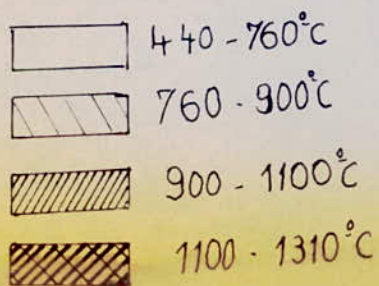 440-760°C
760-900°C
900-1100°C
1100-1310°C